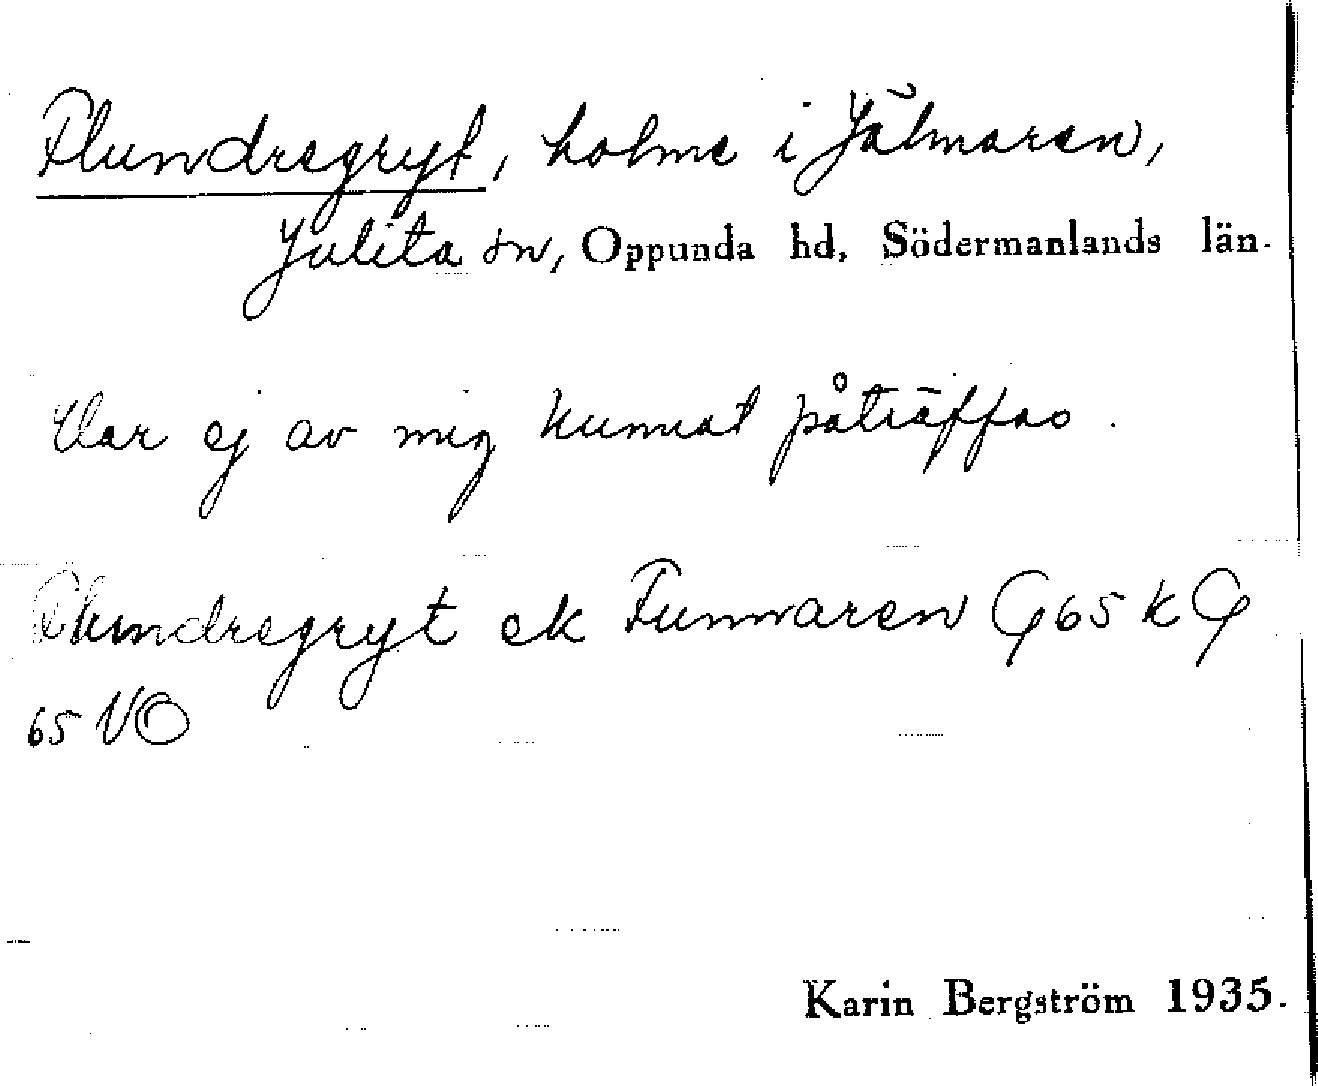 Flundregryt, holme i Jälmaren,
Julita sn, Oppunda hd, Södermanlands län.
Har ej av mig kunnat påträffas.
Flundregryt ek Funnaren 65 k
65
Karin Bergström 1935.